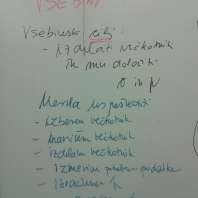 VSEBINA
Vsebinski cilj:
- izdelat večkotnik
in mu določiti
o in p
Merila uspešnosti:
- izberem večkotnik
- narišem večkotnik
- izdelam večkotnik
- izmerim potrebne podatke
- izračunam p